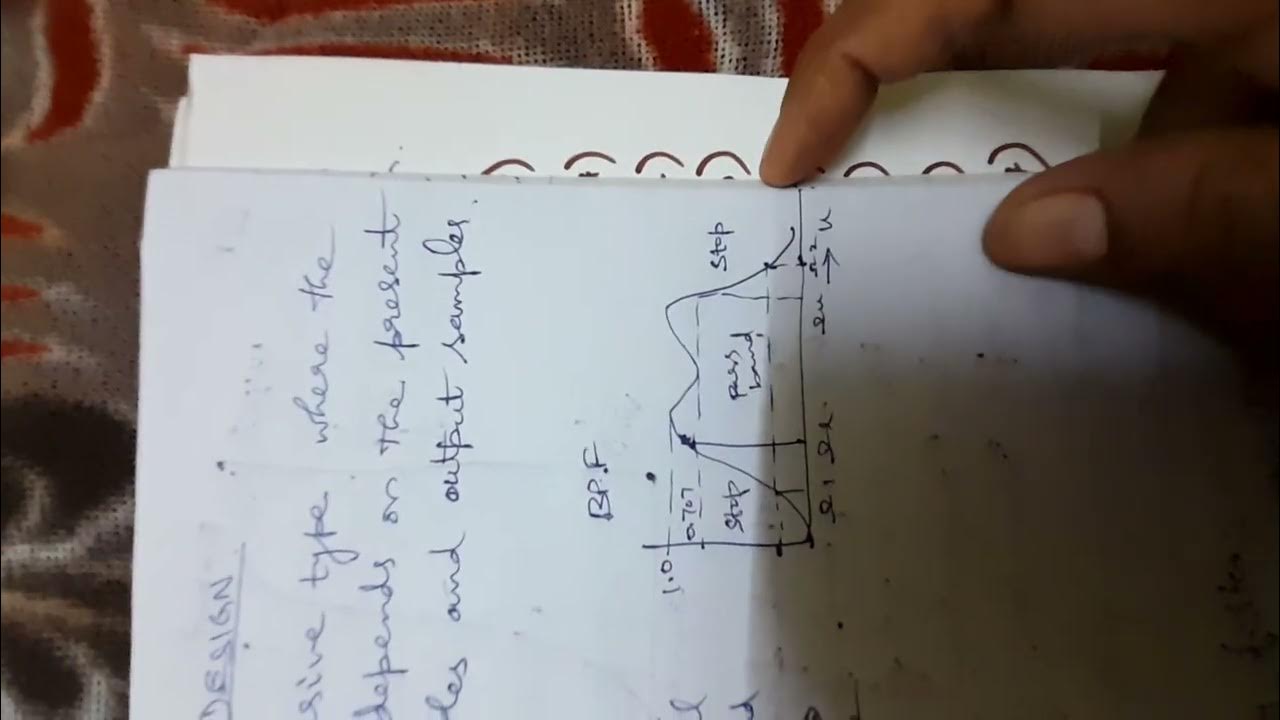 DESIGN
sive type where the
depends on the present
les and output samples.
BP.F
1.0
0.707
Stop
Pass
band
Stop
Ω1 Ωl Ωu Ω2 → Ω